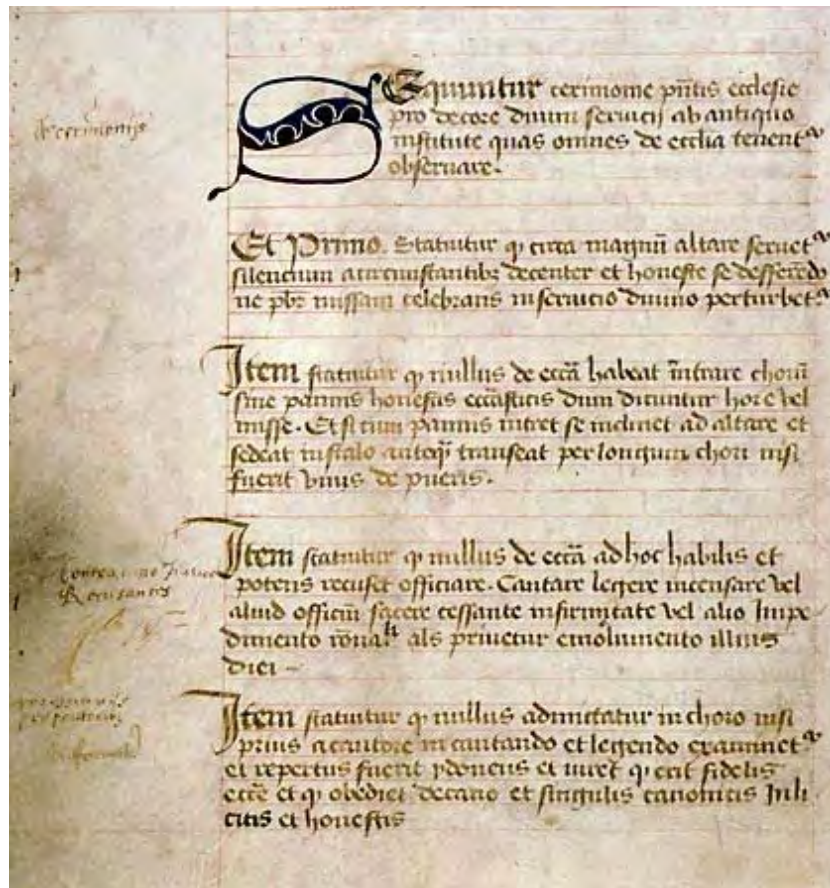 de cerimonijs
Sequuntur cerimonie pñtis ecclesie
pro decore diuini seruicij ab antiquo
institute quas omnes de ecclia tenent
obseruare.
Et Primo. Statuitur q circa magnũ altare seruet
silencium a circunstantibz decenter et honeste se
ne pbr missam celebrans in seruicio diuino perturbet
Item statuitur q nullus de eccã habeat ĩntrare chorũ
sine pannis honestis eccãsticis dum dicuntur hore vel
misse. Et si cum pannis intret se inclinet ad altare et
sedeat in stalo anteq̃ transeat per longum chori nisi
fuerit vnus de pueris.
Item statuitur q nullus de eccã ad hoc habilis et
potens recuset officiare. Cantare legere incensare vel
aliud officiũ facere cessante infirmitate vel alio Impe
dimento als priuetur emolumento illius
diei
Recusantes
Item statuitur q nullus admictatur in choro nisi
prius a cantore in cantando et legendo examinet
et repertus fuerit ydoneus et iuret q erit fidelis
eccẽ et q obediet decano et singulis canonicis In li
citis et honestis